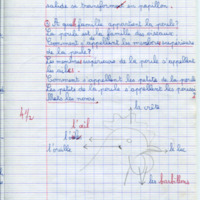 solides se transforment en papillon.
① A quel famille appartient la poule?
La poule est de la famille des oiseaux
Comment s'appellent les membres supérieurs
de la poule?
Les membres supérieurs de la poule s'appellent
les ailes.
Comment s'appellent les petits de la poule
Les petits de la poule s'appellent les pous
la crête
l'œil
l'oreille
le bec
les barbillons